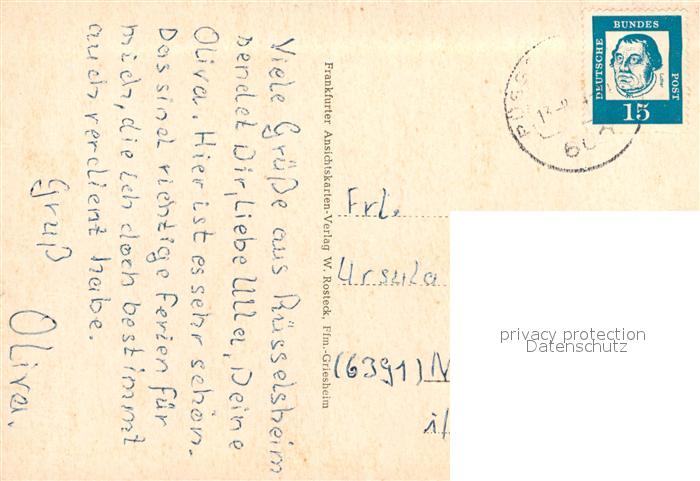 Viele Grüße aus Rüsselsheim
sendet Dir, liebe Ulla, Deine
Oliva. Hier ist es sehr schön.
Das sind richtige Ferien für
mich, die ich doch bestimmt
auch verdient habe.
Gruß
Oliva.
Frankfurter Ansichtskarten-Verlag W. Rosteck, Ffm.-Griesheim
DEUTSCHE
BUNDES
POST
15
Frl.
Ursula
(6391) N
i/
privacy protection
Datenschutz